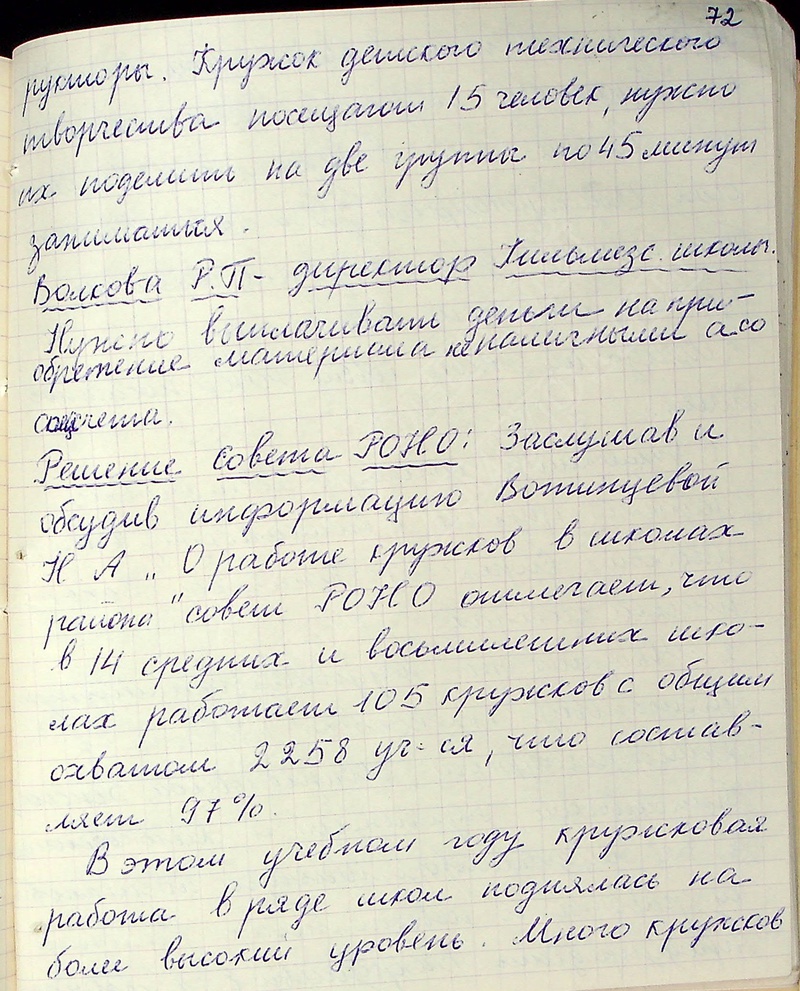 72
рукторы. Кружок детского технического
творчества посещают 15 человек, нужно
их поделить на две группы по 45 минут
заниматься.
Волкова Р.П - директор Кильмезс. школы.
Нужно выплачивать деньги на при-
обретение материала неналичными а со
счета.
Решение совета РОНО: Заслушав и
обсудив информацию Вотинцевой
Н А „О работе кружков в школах
района" совет РОНО отмечает, что
в 14 средних и восьмилетних шко-
лах работает 105 кружков с общим
охватом 2258 уч-ся, что состав-
ляет 97%.
В этом учебном году кружковая
работа в ряде школ поднялась на
боли высокий уровень. Много кружков